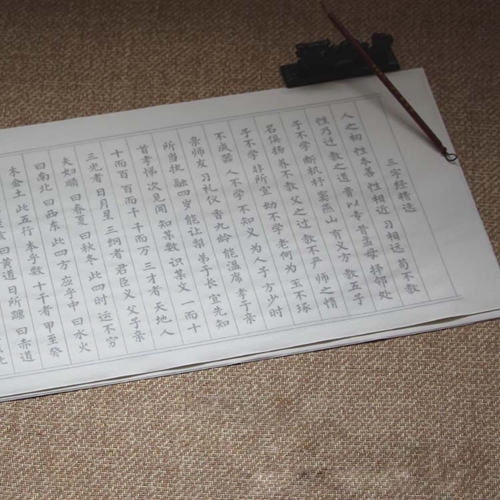 三字经精选
人之初 性本善 性相近 习相远 苟不教
性乃迁 教之道 贵以专 昔孟母 择邻处
子不学 断机杼 窦燕山 有义方 教五子
名俱扬 养不教 父之过 教不严 师之惰
子不学 非所宜 幼不学 老何为 玉不琢
不成器 人不学 不知义 为人子 方少时
亲师友 习礼仪 香九龄 能温席 孝于亲
所当执 融四岁 能让梨 弟于长 宜先知
首孝悌 次见闻 知某数 识某文 一而十
十而百 百而千 千而万 三才者 天地人
三光者 日月星 三纲者 君臣义 父子亲
夫妇顺 曰春夏 曰秋冬 此四时 运不穷
曰南北 曰西东 此四方 应乎中 曰水火
木金土 此五行 本乎数 十干者 甲至癸
曰黄道 日所躔 曰赤道